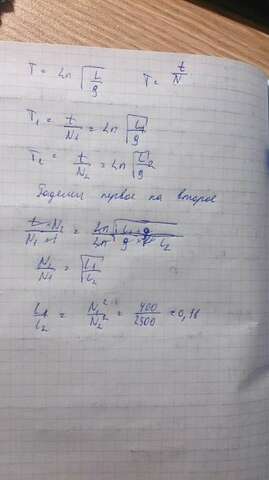 T = 2π √(L/g)    T = t/N
T₁ = t/N₁ = 2π √(L₁/g)
T₂ = t/N₂ = 2π √(L₂/g)
Поделим первое на второе
t·N₂/N₁·t = 2π/2π √(L₁·g/g·L₂)
N₂/N₁ = √(L₁/L₂)
L₁/L₂ = N₂²/N₁² = 400/2500 = 0,16